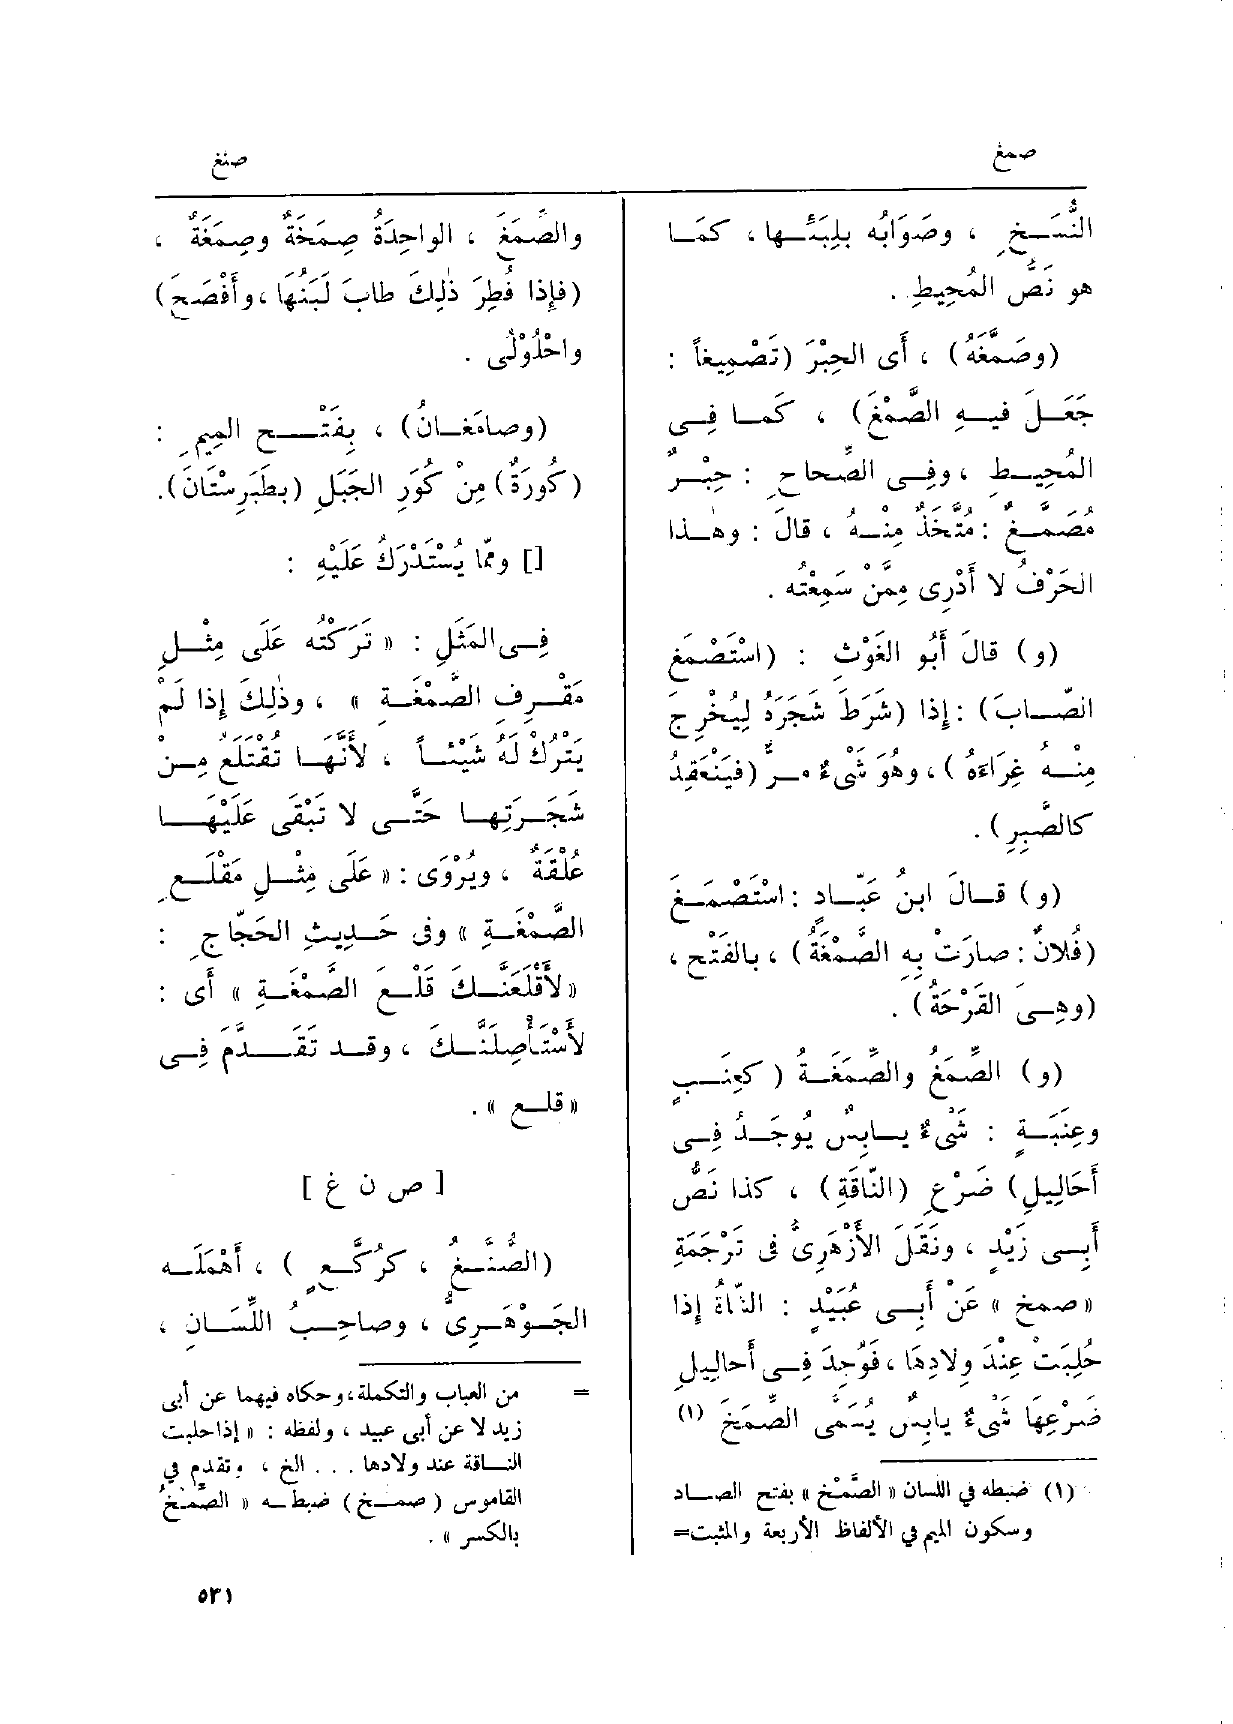 صمغ
صنغ
النُّسَخِ ، وصَوَابُه بلِبَئِها ، كَمَا
هو نَصُّ المُحِيطِ .
(وصَمَّغَهُ) ، أَى الحِبْرَ (تَصْمِيغاً :
جَعَلَ فيهِ الصَّمْغَ) ، كَمَا فِى
المُحِيطِ ، وفِى الصِّحاحِ : حِبْرٌ
مُصَمَّغٌ : مُتَّخَذٌ مِنْهُ ، قالَ : وهٰذا
الحَرْفُ لا أَدْرِى مِمَّنْ سَمِعْتُه .
(و) قالَ أَبُو الغَوْثِ : (اسْتَصْمَغَ
الصَّابَ) : إذا (شَرَطَ شَجَرَهُ لِيَخْرِجَ
مِنْهُ غِرَاءُه) ، وهُوَ شَىْءٌ مرٌّ (فيَنْعَقِدُ
كالصَّبِرِ) .
(و) قالَ ابنُ عَبّادٍ : اسْتَصْمَغَ
(فُلانٌ : صارَتْ بِهِ الصَّمْغَةُ) ، بالفَتْحِ ،
(وهِىَ القَرْحَةُ) .
(و) الصِّمَغُ والصِّمَغَةُ (كعِنَبٍ
وعِنَبَةٍ : شَىْءٌ يابِسٌ يُوجَدُ فِى
أَحَالِيلِ) ضَرْعِ (النّاقَةِ) ، كذا نَصُّ
أَبِى زَيْدٍ ، ونَقَلَ الأَزْهَرِىُّ فى تَرْجَمَةِ
« صمخ » عَنْ أَبِى عُبَيْدٍ : الشّاةُ إذا
حُلِبَتْ عِنْدَ وِلادِهَا ، فَوُجِدَ فِى أَحالِيلِ
ضَرْعِهَا شَىْءٌ يابِس يُسَمَّى الصِّمَخَ (١)
(١) ضبطه في اللسان « الصَّمْخ » بفتح الصاد
وسكون الميم في الألفاظ الأربعة والمثبت=
والصِّمَغَ ، الواحِدَةُ صِمَخَةٌ وصِمَغَةٌ ،
(فإذا فُطِرَ ذٰلِكَ طابَ لَبَنُهَا ، وأَفْصَحَ)
واحْلَوْلَى .
(وصامَغَانُ) ، بِفَتْحِ المِيمِ :
(كُورَةٌ) مِنْ كُوَرِ الجَبَلِ (بطَبَرِسْتَانَ).
[] وممّا يُسْتَدْرَكُ عَلَيْهِ :
فِى المَثَلِ : « تَرَكْتُه عَلَى مِثْلِ
مَقْرِفِ الصَّمْغَةِ » ، وذٰلِكَ إذا لَمْ
يَتْرُكْ لَهُ شَيْئاً ، لأَنَّهَا تُقْتَلَعُ مِنْ
شَجَرَتِها حَتَّى لا تَبْقَى عَلَيْهَا
عُلْقَةٌ ، ويُرْوَى : « عَلَى مِثْلِ مَقْلَعِ
الصَّمْغَةِ » وفى حَدِيثِ الحَجّاجِ :
« لأَقْلَعَنَّكَ قَلْعَ الصَّمْغَةِ » أَى :
لأَسْتَأْصِلَنَّكَ ، وقد تَقَدَّمَ فِى
« قلع » .
[ ص ن غ ]
(الصُّنَّغُ ، كرُكَّعٍ ) ، أَهْمَلَه
الجَوْهَرِىُّ ، وصاحِبُ اللِّسَانِ ،
= من العباب والتكملة، وحكاه فيهما عن أبى
زيد لا عن أبى عبيد ، ولفظه : « إذا حلبت
الناقة عند ولادها . . . الخ ، وتقدم في
القاموس (صمخ) ضبطه « الصِّمْخُ
بالكسر » .
٥٢١